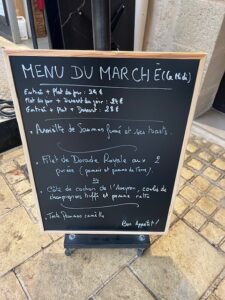 MENU DU MARCHÉ (Le Midi)
Entrée + Plat du jour : 24 €
Plat du jour + Dessert du jour : 24 €
Entrée + Plat + Dessert : 28 €
Assiette de Saumon fumé et ses toasts.
• Filet de Dorade Royale aux 2
purées (panais et pomme de terre).
ou
• Côte de cochon de l'Aveyron, coulis de
champignons truffé et pomme ratte
- Tarte Pommes
Bon Appétit !